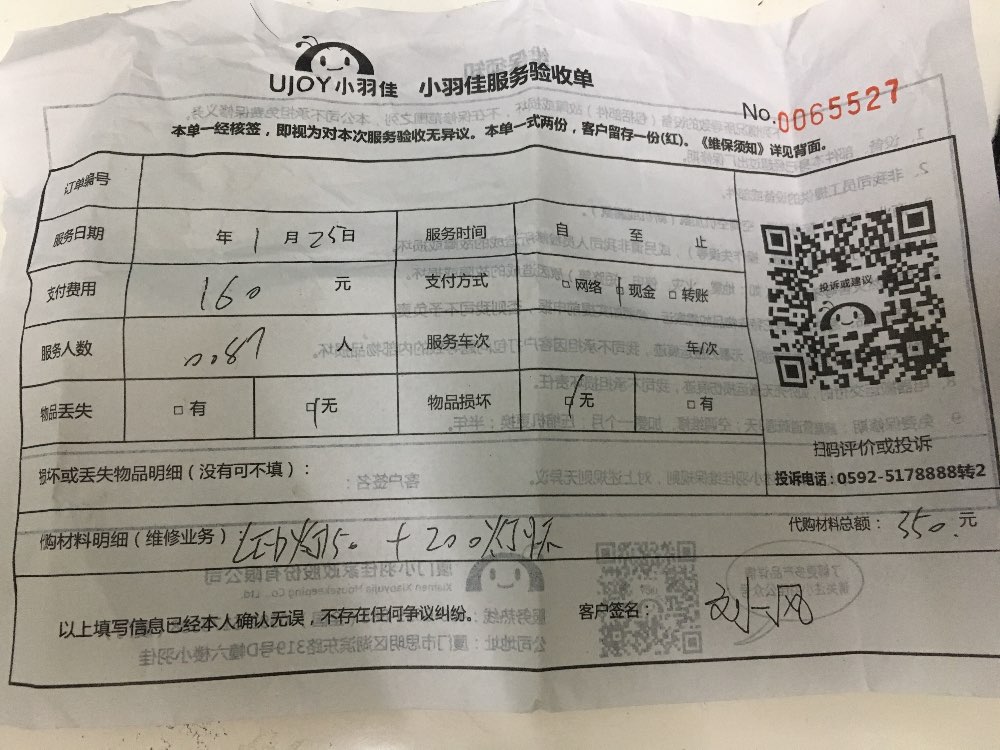 UJOY小羽佳 小羽佳服务验收单
No.0065527
本单一经核签，即视为对本次服务验收无异议。本单一式两份，客户留存一份(红)。《维保须知》详见背面。
订单编号
服务日期 年 1 月 25 日 服务时间 自 至 止
支付费用 160 元 支付方式 □ 网络 □ 现金 □ 转账
服务人数 人 服务车次 车/次
物品丢失 □ 有 □ 无 物品损坏 □ 无 □ 有
投诉或建议
扫码评价或投诉
投诉电话：0592-5178888转2
损坏或丢失物品明细（没有可不填）：
购材料明细（维修业务）： 灯50 + 200灯
代购材料总额： 350 元
以上填写信息已经本人确认无误，不存在任何争议纠纷。
客户签名： 刘一风